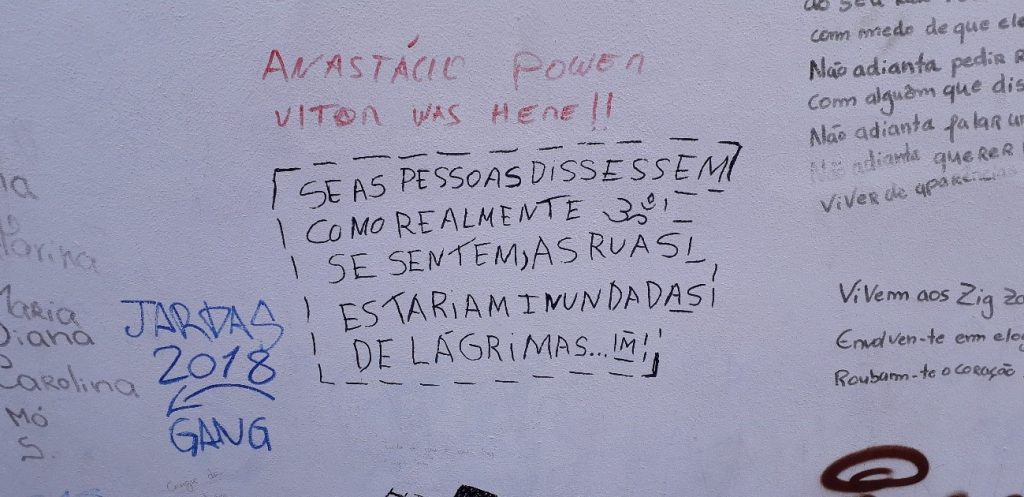 ANASTÁCIO POWER
VITOR WAS HERE!!
SE AS PESSOAS DISSESSEM
COMO REALMENTE ૐ
SE SENTEM, AS RUAS
ESTARIAM INUNDADAS
DE LÁGRIMAS... M
JARDAS
2018
GANG
Marina
MARIA
Diana
Carolina
MÓ
S.
ao seu
com medo de que ele
Não adianta pedir
Com alguém que dis
Não adianta falar um
Não adianta querer
Viver de aparências
Vivem aos Zig Za
Envolven-te em elog
Roubam-te o coração